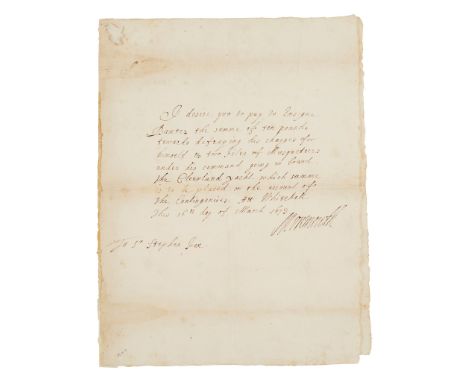 I desire you to pay to Ensigne
the summe off ten pounds
towards defraying the charges for
himself & two files off Musqueteres
under his command going a board
the Cleveland yacht which summe
is to be placed in the account off
the Contingencies. Att Whitehall
this 18th day of March 1673
Monmouth
To Sr Stephen Fox